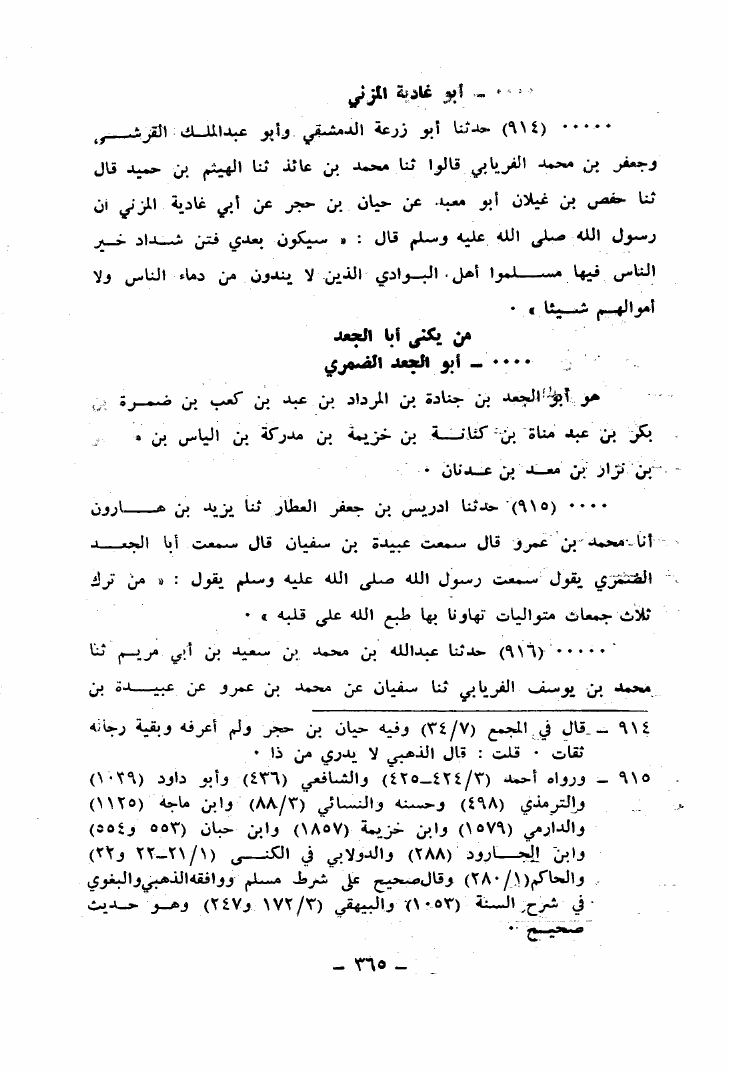 ٠٠٠٠ ــ أبو غادية المزني
٠٠٠٠٠ (٩١٤) حدثنا أبو زرعة الدمشقي وأبو عبدالملك القرشي
وجعفر بن محمد الفريابي قالوا ثنا محمد بن عائذ ثنا الهيثم بن حميد قال
ثنا حفص بن غيلان أبو معبد عن حيان بن حجر عن أبي غادية المزني ان
رسول الله صلى الله عليه وسلم قال : « سيكون بعدي فتن شداد خير
الناس فيها مسلموا أهل البوادي الذين لا يندون من دماء الناس ولا
أموالهم شيئا » ٠
من يكنى أبا الجعد
٠٠٠٠ ــ أبو الجعد الضمري
هو أبو الجعد بن جنادة بن المرداد بن عبد بن كعب بن ضمرة بن
بكر بن عبد مناة بن كنانة بن خزيمة بن مدركة بن الياس بن
بن نزار بن معد بن عدنان ٠
٠٠٠٠ (٩١٥) حدثنا ادريس بن جعفر العطار ثنا يزيد بن هارون
أنا محمد بن عمرو قال سمعت عبيدة بن سفيان قال سمعت أبا الجعد
الضمري يقول سمعت رسول الله صلى الله عليه وسلم يقول : « من ترك
ثلاث جمعات متواليات تهاونا بها طبع الله على قلبه » ٠
٠٠٠٠٠ (٩١٦) حدثنا عبدالله بن محمد بن سعيد بن أبي مريم ثنا
محمد بن يوسف الفريابي ثنا سفيان عن محمد بن عمرو عن عبيدة بن
٩١٤ ــ قال في المجمع (٣٤/٧) وفيه حيان بن حجر ولم أعرفه وبقية رجاله
ثقات ٠ قلت : قال الذهبي لا يدري من ذا ٠
٩١٥ ــ ورواه أحمد (٤٢٤/٣ــ٤٢٥) والشافعي (٤٣٦) وأبو داود (١٠٣٩)
والترمذي (٤٩٨) وحسنه والنسائي (٨٨/٣) وابن ماجة (١١٢٥)
والدارمي (١٥٧٩) وابن خزيمة (١٨٥٧) وابن حبان (٥٥٣ و٥٥٤)
وابن الجارود (٢٨٨) والدولابي في الكنى (٢١/١ــ٢٢ و٢٢)
والحاكم(٢٨٠/١) وقال صحيح على شرط مسلم ووافقه الذهبي والبغوي
في شرح السنة (١٠٥٣) والبيهقي (١٧٢/٣ و٢٤٧) وهو حديث
صحيح ٠
ــ ٣٦٥ ــ